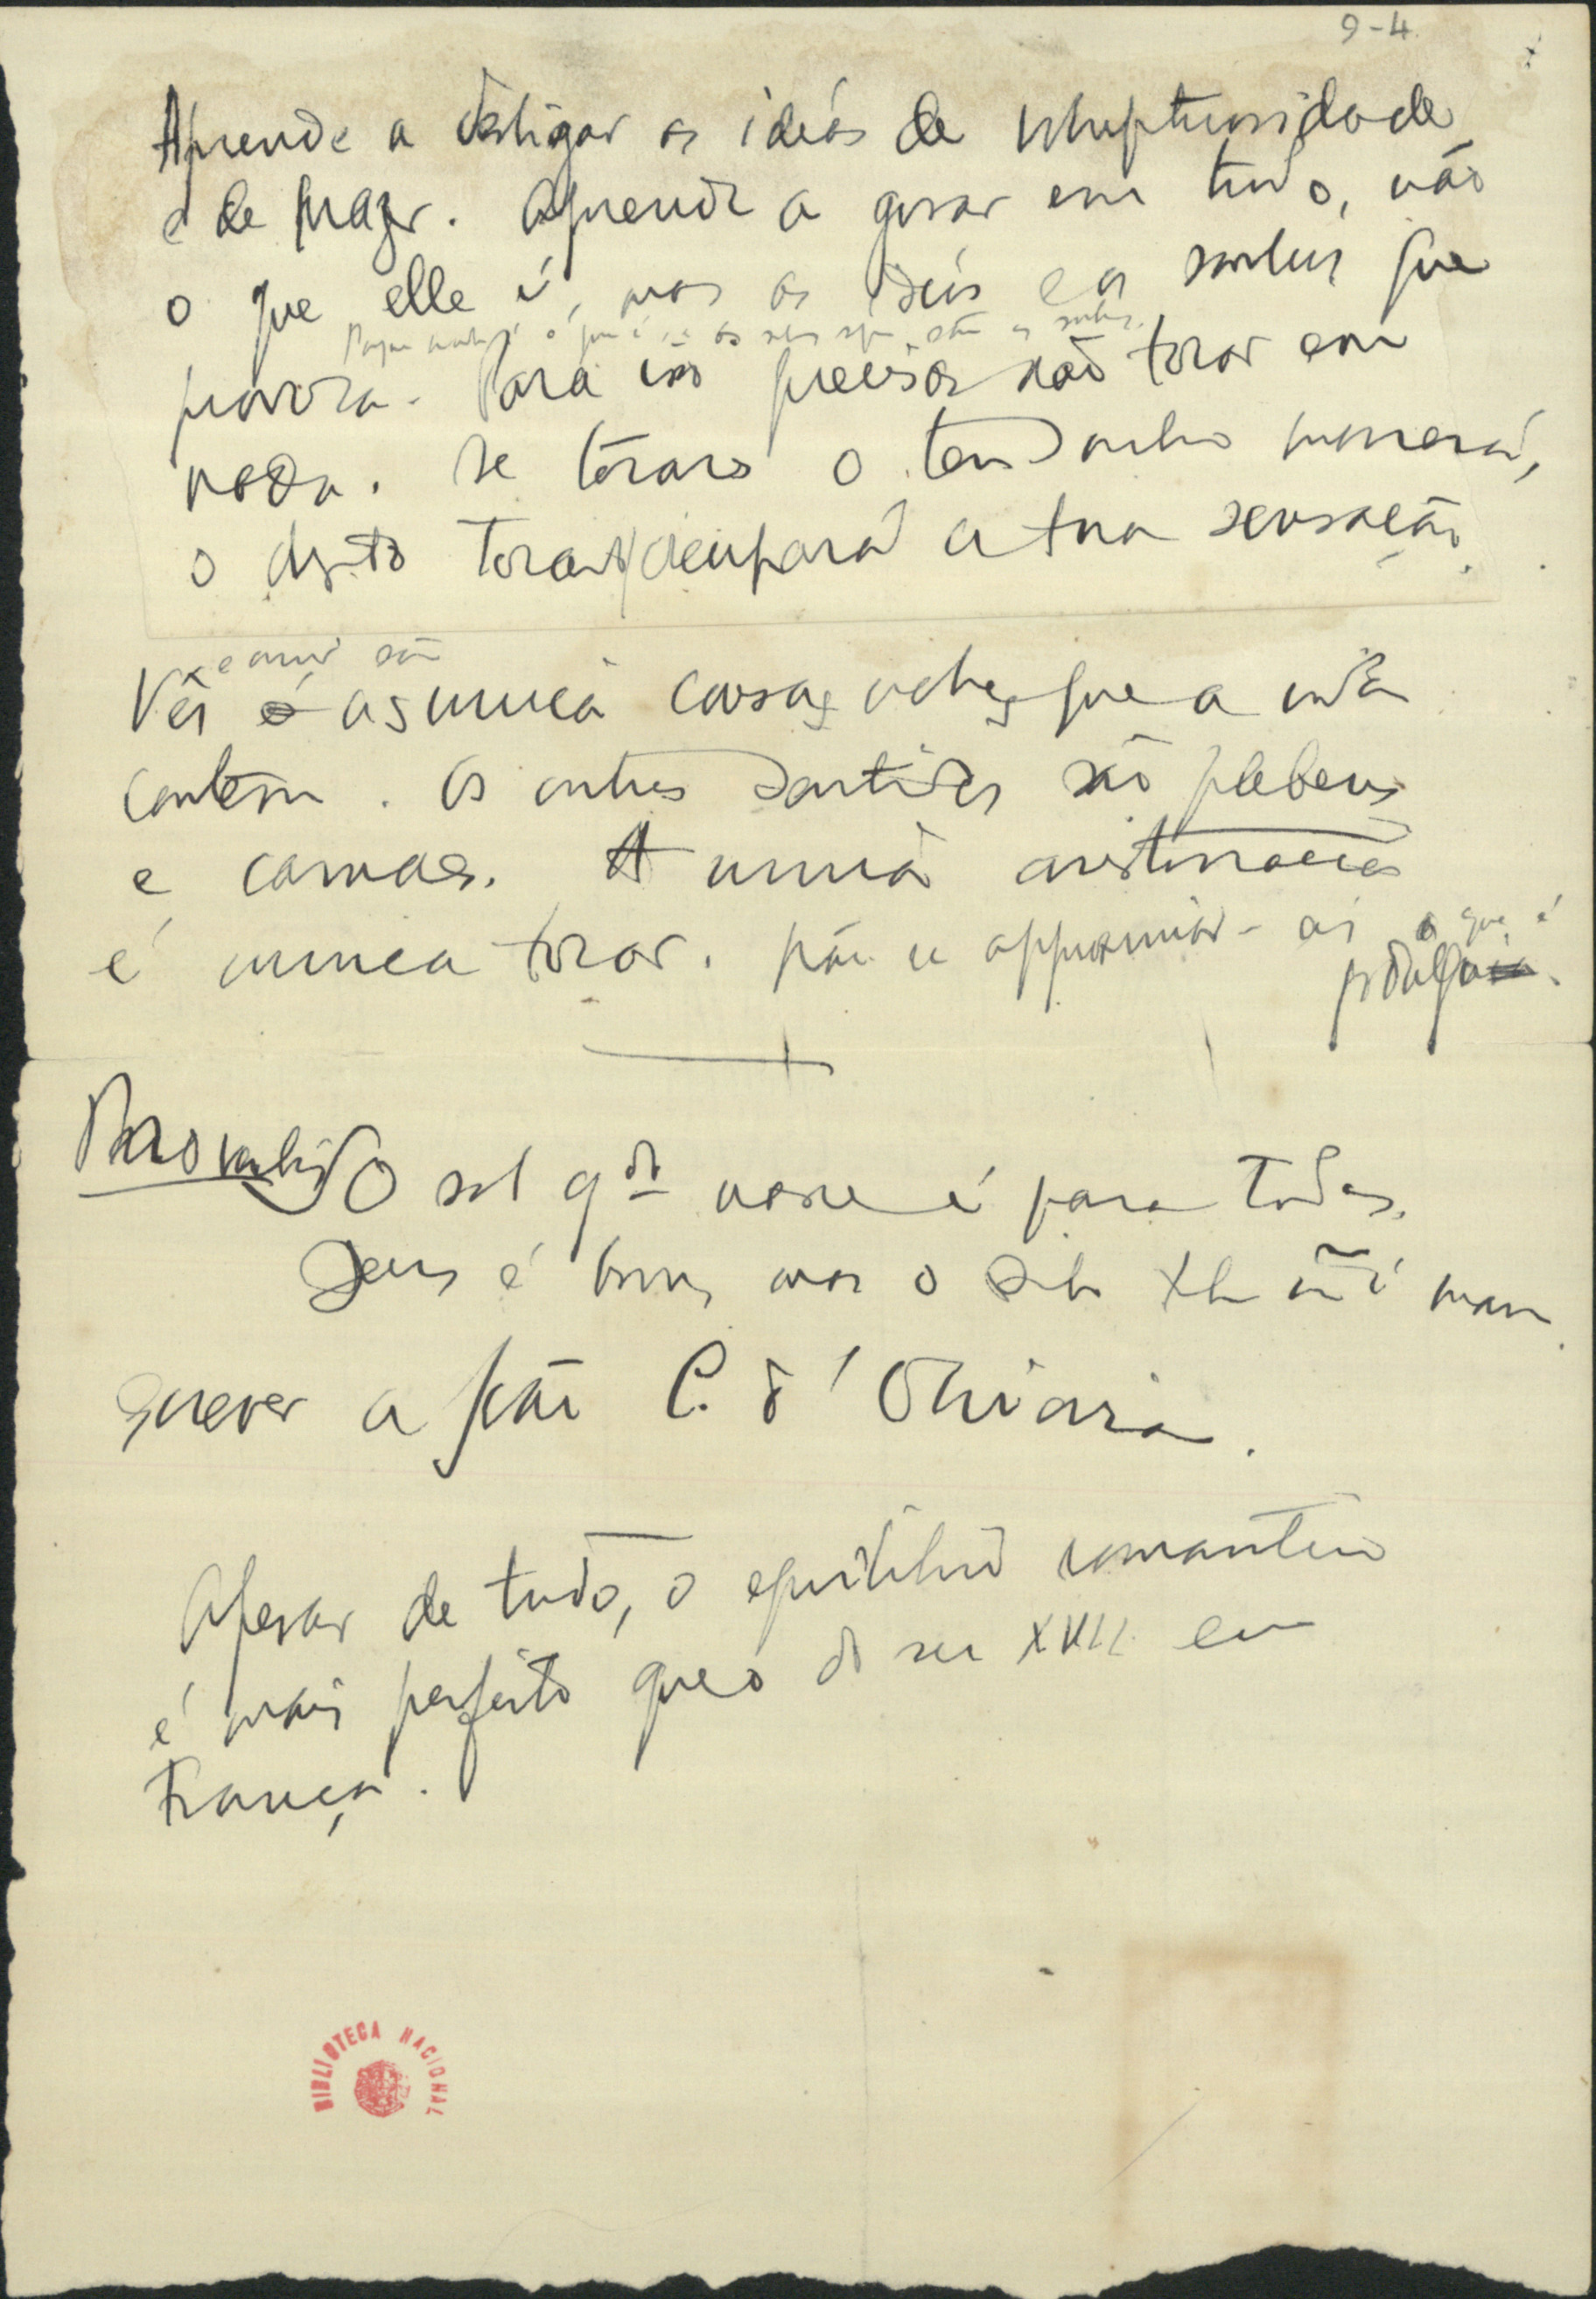 9-4
Aprende a desligar as idéas de voluptuosidade
e de prazer. Aprende a gosar em tudo, não
o que elle é, mas as idéas e os sonhos que
Porque nada é o que é e os sonhos são os sonhos.
provoca. Para isso precisas não tocar em
nada. Se tocares o teu sonho morrerá,
o objecto tocado occupará a tua sensação.
e ouvir são
Vêr é as unicas cousas nobres que a vida
contém. Os outros sentidos são plebeus
e carnaes. A unica aristocracia
é nunca tocar. Não se approximar - eis o que é
fidalgo.
Proverbios O sol q.do nasce é para todos.
Deus é bom, mas o diabo tb não é mau
Escrever a João C. d'Oliveira.
Apesar de tudo, o equilibrio romantico
é mais perfeito que o do sec XVII em
França.
BIBLIOTECA NACIONAL